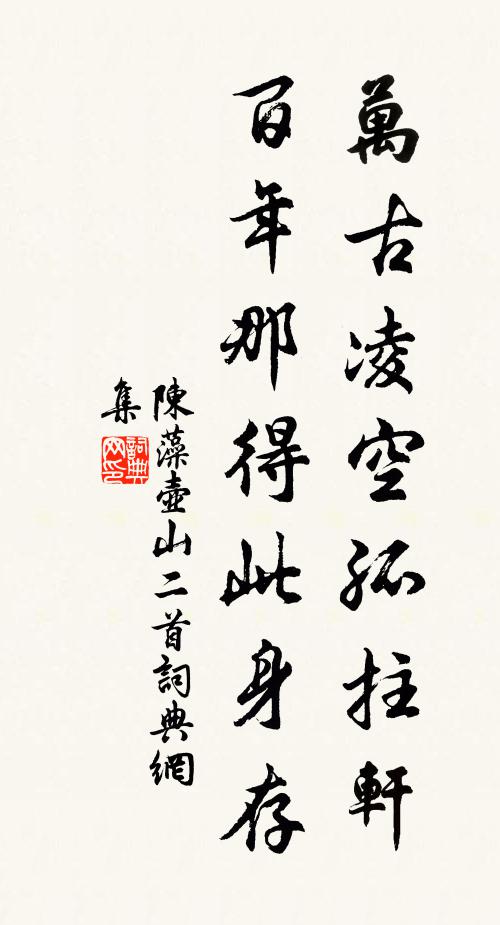 萬古凌空孤拄軒
百年那得此身存
陳藻壺山二首詞典網
集
詞典
网印